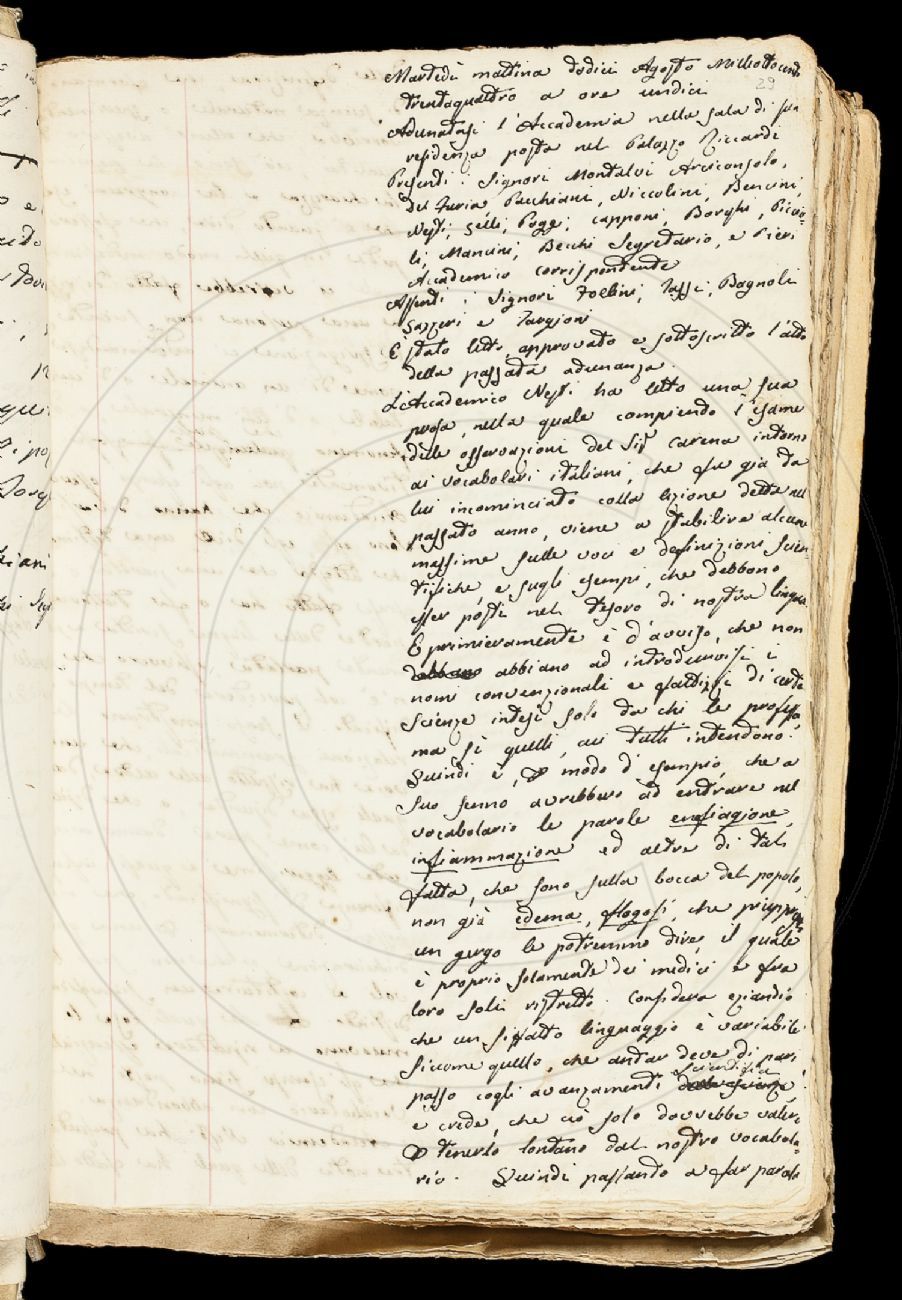 29
Martedì mattina dodici Agosto Milleottocento
trentaquattro a ore undici
Adunatasi l'Accademia nella sala di sua
residenza posta nel Palazzo Riccardi
Presenti: Signori Montalvi Arciconsolo,
del Furia Pacchiani, Niccolini, Bencini,
Nesti, Selli, Poggi, Capponi, Borghi, Piccio-
li, Mancini, Becchi Segretario, e Pieri
Accademico corrispondente
Assenti: Signori Follini, Tassi, Bagnoli
Gazzeri e Targioni
È stato letto, approvato e sottoscritto l'atto
della passata adunanza.
L'Accademico Nesti ha letto una sua
prosa, nella quale compiendo l'esame
delle osservazioni del Sig. Carena intorno
ai vocabolari italiani, che fu già da
lui incominciato colla lezione detta nel
passato anno, viene a stabilire alcune
massime sulle voci e definizioni scien-
tifiche, e sugli esempi, che debbono
esser posti nel tesoro di nostra lingua.
E primieramente è d'avviso, che non
debbano abbiano ad introdurvisi i
nomi convenzionali e fattizzi di certe
scienze intesi solo da chi le professa,
ma sì quelli, cui tutti intendono.
Quindi è, p modo d'esempio, che a
suo senno avrebbero ad entrare nel
vocabolario le parole enfiagione,
infiammazione ed altre di tal
fatta, che sono sulla bocca del popolo,
non già edema, flogosi, che piuttosto
un gergo le potremmo dire, il quale
è proprio solamente dei medici e fra
loro soli ristretto. Considera eziandio
che un siffatto linguaggio è variabile
siccome quello, che andar deve di pari
scientifici
passo cogli avanzamenti delle scienze,
e crede, che ciò solo dovrebbe valere
p tenerlo lontano dal nostro vocabola-
rio. Quindi passando a far parola